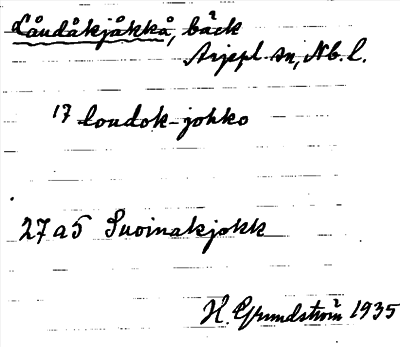 Låudåkjåkkå, bäck
Arjepl. sn, Nb. l.
17 loudok-johko
27 a 5 Suoinakjokk
H. Grundström 1935